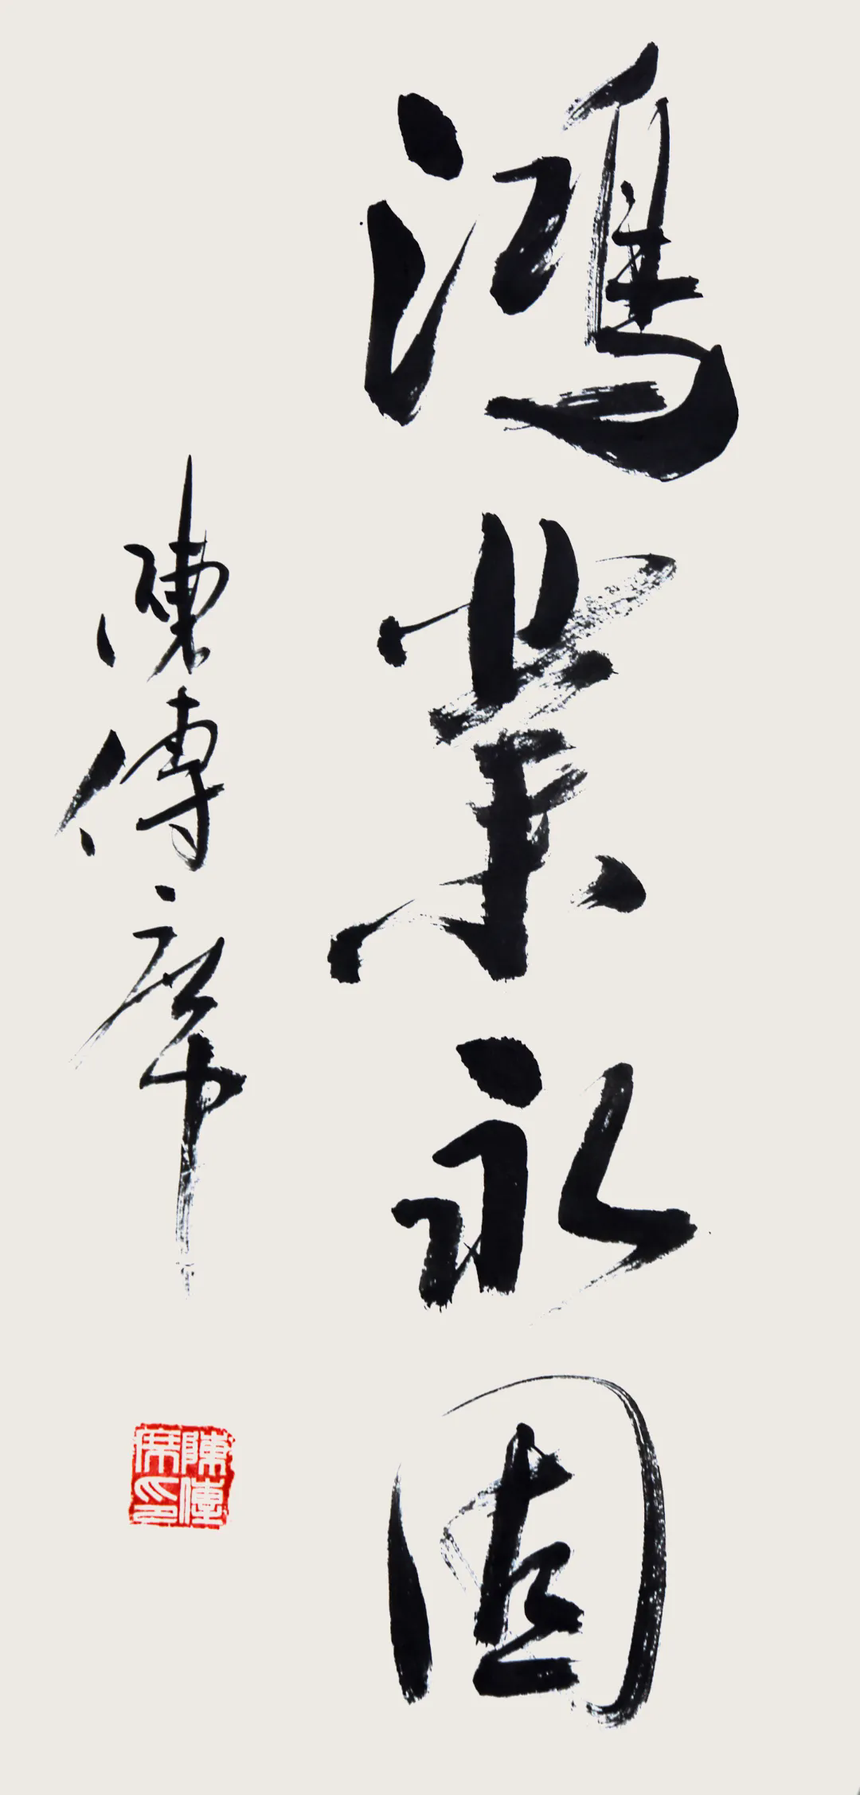 鴻業永固
陳傳席
陳傳席印